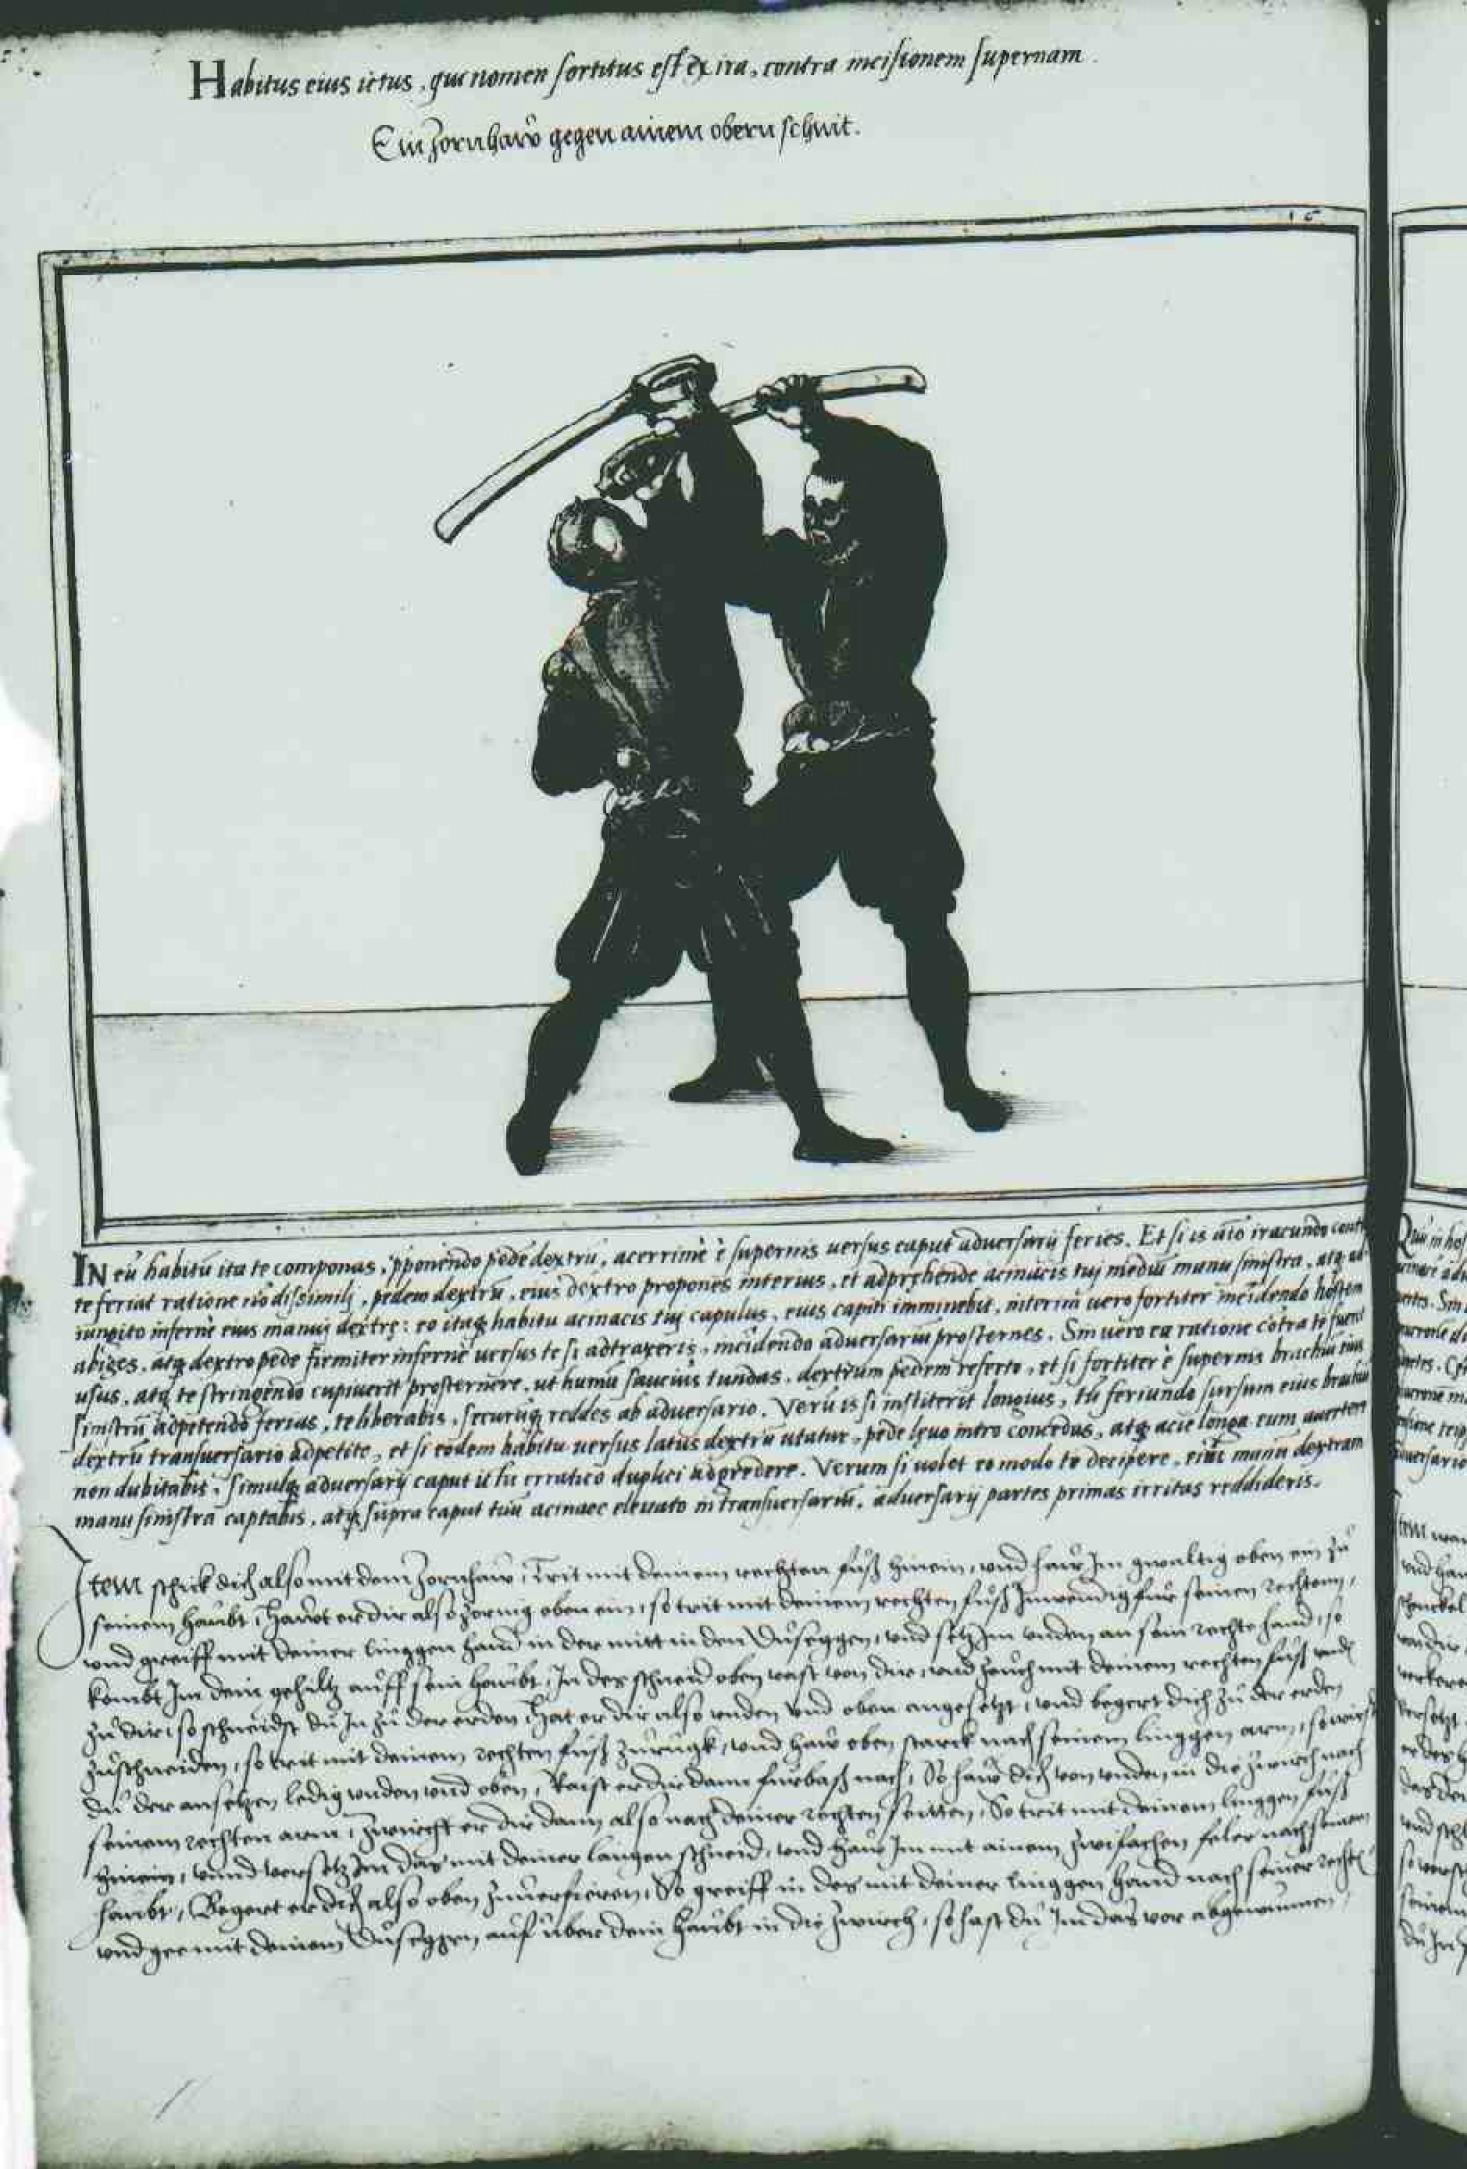 Habitus eius ictus, qui nomen sortitus est ex ira, contra incisionem supernam.
Ein Zornhaw gegen ainem obern schnit.
16
IN eū habitū ita te componas, ꝓponendo pedē dextrū, acerrimè è supernis uersus caput aduersarij feries. Et si is aīo iracundo cont
te feriat ratione nō dissimili, pedem dextrū, eius dextro propones interius, et adprehende acinacis tuj mediū manu sinistra, atq
iungito infernè eius manui dextrę: eo itaq habitu acinacis tuj capulus, eius capiti imminebit, interim uero fortiter incidendo hostem
abiges, atq dextro pede firmiter infernè uersus te si adtraxeris, incidendo aduersariū prosternes. Sin uero ea ratione cōtra te fuerit
usus, atq te stringendo cupiuerit prosternere, ut humū saucius tundas, dextrum pedem referto, et si fortiter è supernis brachiū eius
sinistrū adpetendo ferias, te liberabis, securūq reddes ab aduersario. Verū is si institerit longius, tu feriundo sursum eius brachiū
dextrū transuersario adpetito, et si eodem habitu uersus latus dextrū utatur, pede lęuo intro concedas, atq acie longa eum auertere
non dubitabis, simulq aduersarij caput ictu erratico duplici adgredere. Verum si uolet eo modo te decipere, manū dextram
manu sinistra captabis, atq supra caput tuū acinace eleuato in transuersariū, aduersarij partes primas irritas reddideris.
Item schick dich also mit dem Zornhaw, Trit mit deinem rechten fuß hinein, und haw Im gwaltig oben ein zů
seinem haubt, Hawt er dir also zornig oben ein, so trit mit deinem rechten fuß Inwendig für seinen rechten,
und greiff mit deiner linggen hand in der mitt in den Dusęggen, und setz Im unden an sein rechte hand, so
kombt Im dein gehiltz auff sein haubt, In des schneid oben vast von dir, und zeuch mit deinem rechten fuß unden
zů dir, so schneidst du In zů der erden, Hat er dir also unden und oben angesetzt, und begert dich zů der erden
zůschneiden, so trit mit deinem rechten fuß zurugk, und haw oben starck nach seinem linggen arm, so wirst
du der ansetzen ledig unden und oben, Raist er dir dann fürbaß nach, So haw dich von unden in die zwirch nach
seinem rechten arm, Zwircht er dir dann also nach deiner rechten seitten, So trit mit deinem linggen fuß
hinein, unnd versetz Im das mit deiner langen schneid, und haw Im mit ainem zwifachen feler nach seinem
haubt, Begert er dich also oben zůverfieren, So greiff in des mit deiner linggen hand nach seiner rechten
und gee mit deinem Dusęggen auf über dein haubt in die zwirch, so hast du Im das vor abgewunnen,